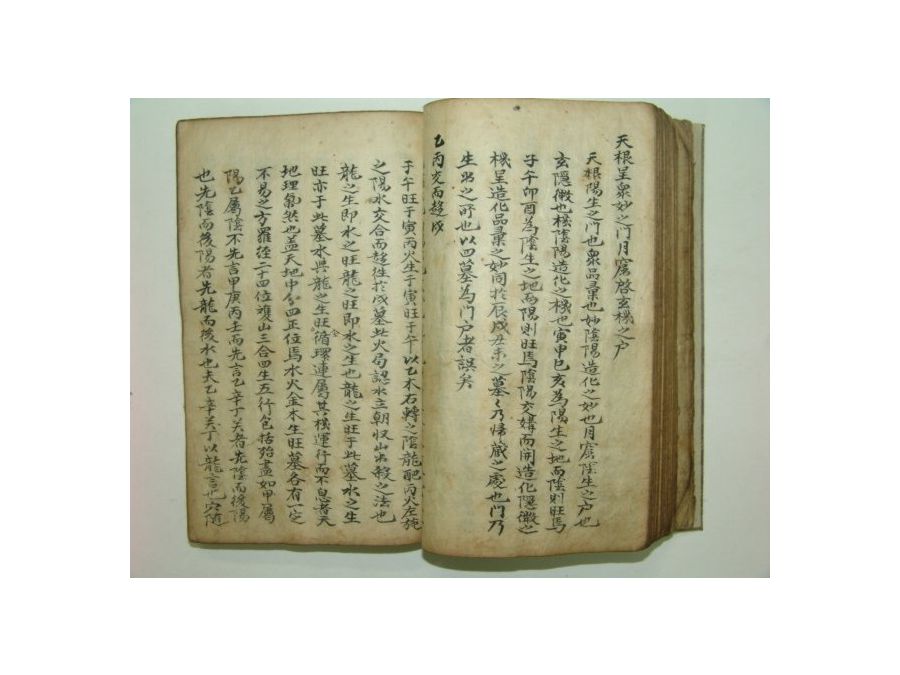 天根呈衆妙之门月窟啓玄機之户
天根陽生之门也衆品彙也妙陰陽造化之妙也月窟陰生之户也
玄隱微也機陰陽造化之機也寅申巳亥為陽生之地而陰則旺焉
子午卯酉為陰生之地而陽則旺焉陰陽交媾而開造化隱微之
機呈造化品彙之妙同於辰戌丑未之墓墓乃歸藏之處也门乃
生出之所也以四墓為门户者誤矣
乙丙交而趍戌
于午旺于寅丙火生于寅旺于午以乙木右轉之陰龍配丙火左旋
之陽水交合而趍往於戌墓此火局認水立朝収山出殺之法也
龍之生即水之旺龍之旺即水之生也龍之生旺于此墓水之生
旺亦于此墓水與龍之生旺循環連屬其機運行而不息者天
地理氣然也盖天地中分四正位焉水火金木生旺墓各有一定
不易之方羅經二十四位雙山三合四生五行包括殆盡如甲屬
陽乙屬陰不先言甲庚丙壬而先言乙辛丁癸者先陰而後陽
也先陰而後陽者先龍而後水也夫乙辛癸丁以龍言也穴随